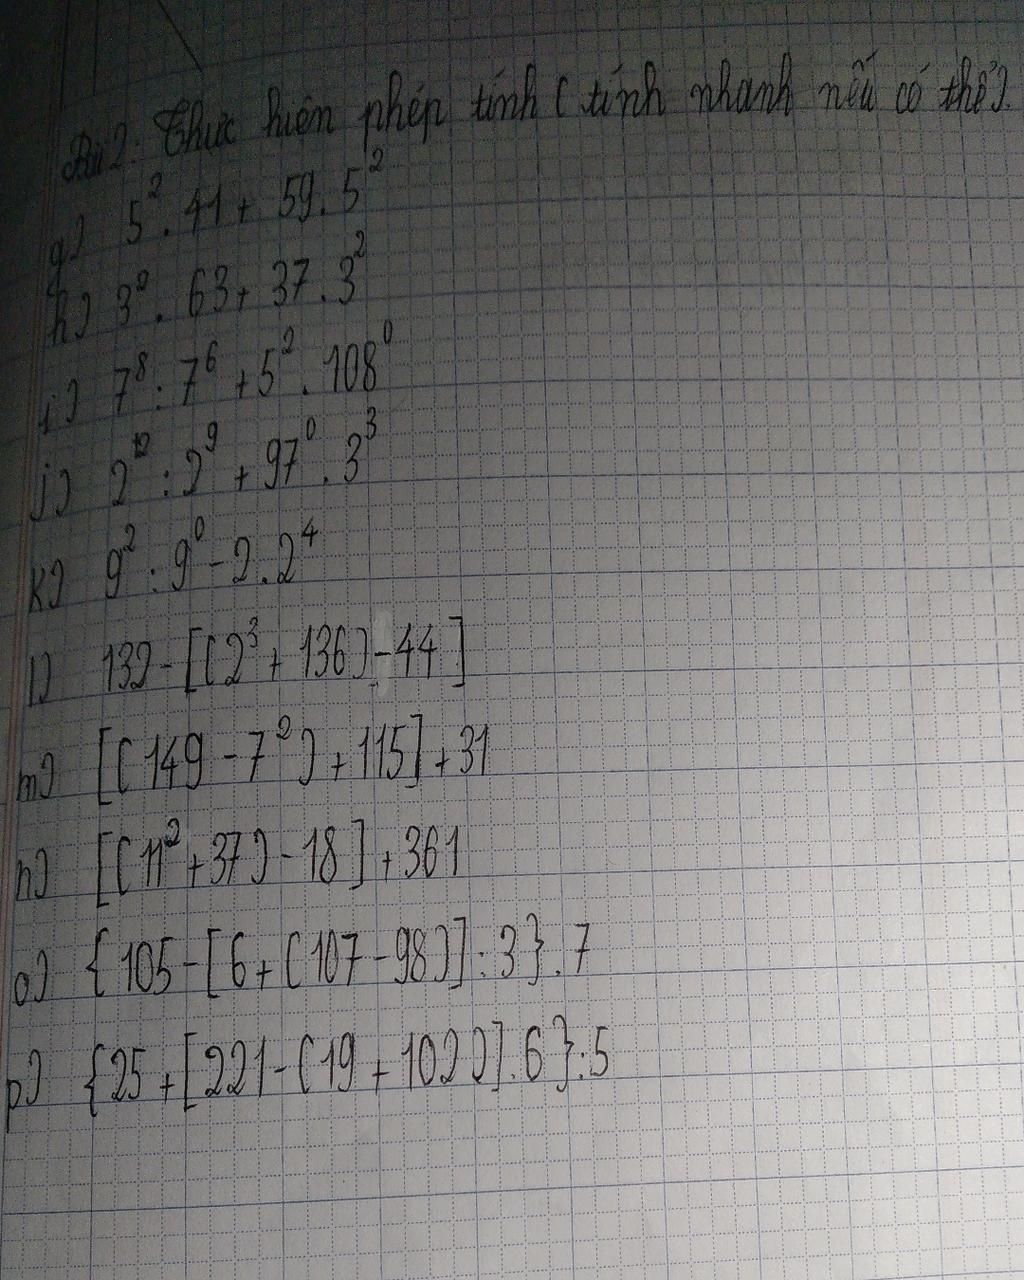 Bài 2: Thực hiện phép tính ( tính nhanh nếu có thể).
g) 5². 41 + 59. 5²
h) 3⁰. 63 + 37. 3²
i) 7⁸ : 7⁶ + 5². 108⁰
j) 2¹⁰ : 2⁹ + 97⁰. 3³
k) 9² : 9⁰ - 2. 2⁴
l) 132 - [( 2³ + 136) - 44 ]
m) [( 149 - 7² ) + 115] + 31
n) [( 11² + 37) - 18 ] + 361
o) { 105 - [6 + ( 107 - 98)] : 3 }. 7
p) { 25 + [ 221 - ( 19 + 102)]. 6 } : 5